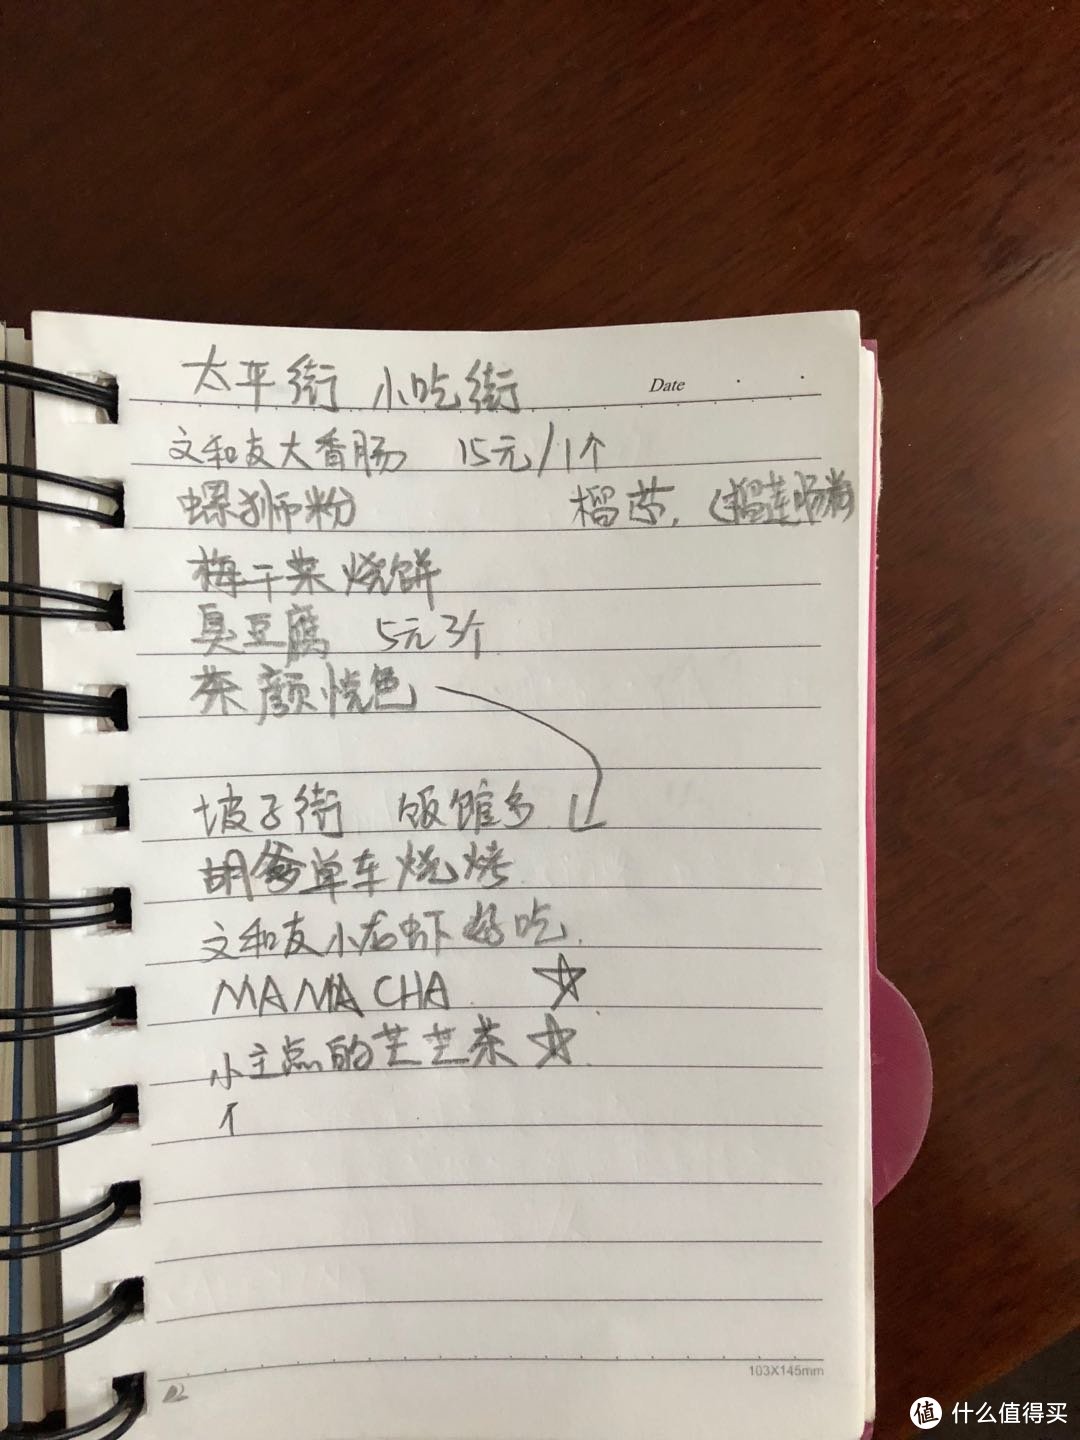 太平街 小吃街 Date
文和友大香肠 15元/1个
螺狮粉 榴芒. (榴莲肠粉)
梅干菜烧饼
臭豆腐 5元3个
茶颜悦色
坡子街 饭馆多
胡爹单车烧烤
文和友小龙虾好吃.
MAMACHA ☆
小主点的芝芝茶 ☆
个
103X145mm
值 什么值得买